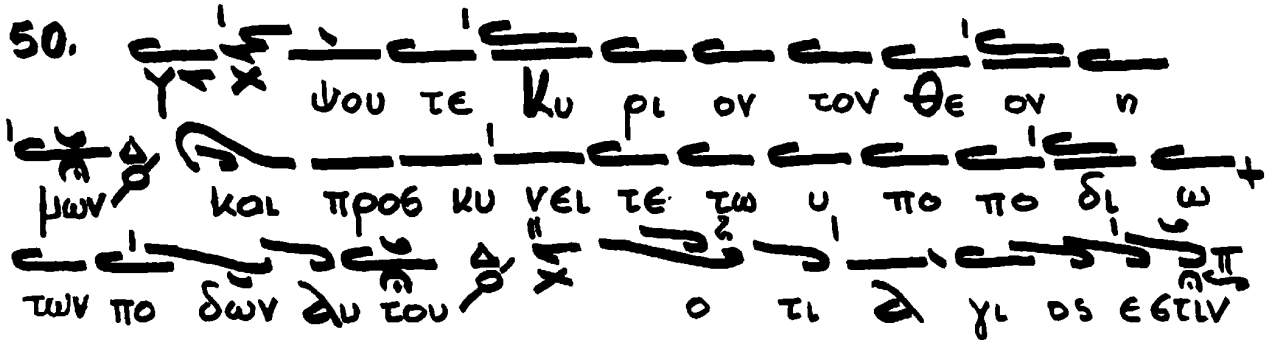 50. Υ ψου τε Κυ ρι ον τον Θε ον η
μων και προσ κυ νει τε τω υ πο πο δι ω
των πο δων αυ του ο τι α γι ος ε στιν